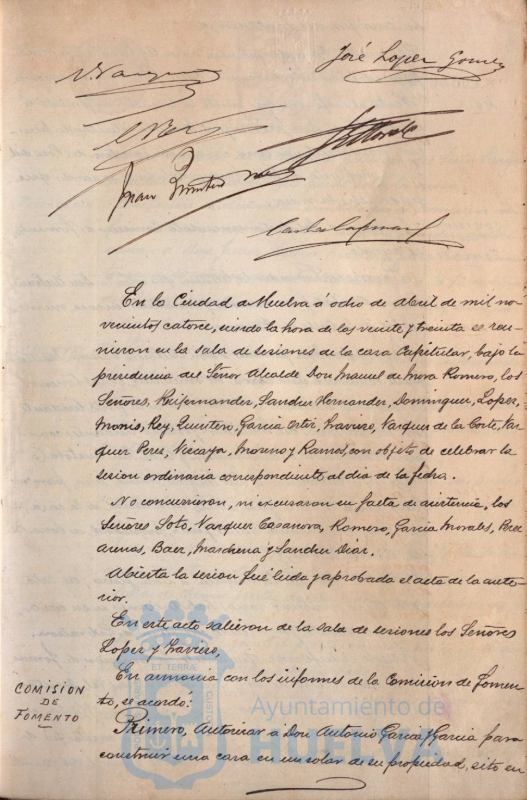 José Lopez Gomez
Juan Quintero
En la Ciudad de Huelva á ocho de abril de mil no
vecientos catorce, siendo la hora de las veinte y treinta se reu
nieron en la sala de sesiones de la casa Capitular, bajo la
presidencia del Señor Alcalde Don Manuel de Mora Romero, los
Señores, Sanchez Hernandez, Dominguez, Lopez,
Monis, Rey, Quintero, Garcia Ortiz, Traviezo, Vazquez de la Corte, Vaz
quez Perez, Vizcaya, Moreno y Ramos, con objeto de celebrar la
sesion ordinaria correspondiente al dia de la fecha.
No concurrieron, ni excusaron su falta de asistencia, los
Señores Soto, Vazquez Casanova, Romero, Garcia Morales, Perez
Arenas, Baez, Marchena y Sanchez Diaz.
Abierta la sesion fué leida y aprobada el acta de la ante
rior.
En este acto salieron de la sala de sesiones los Señores
Lopez y Traviezo,
En armonia con los informes de la Comision de Fomen
to, se acordó:
COMISION
DE
FOMENTO
Primero, Autorizar a Don Antonio Garcia y Garcia para
construir una casa en un solar de su propiedad, sito en
Ayuntamiento de
HUELVA